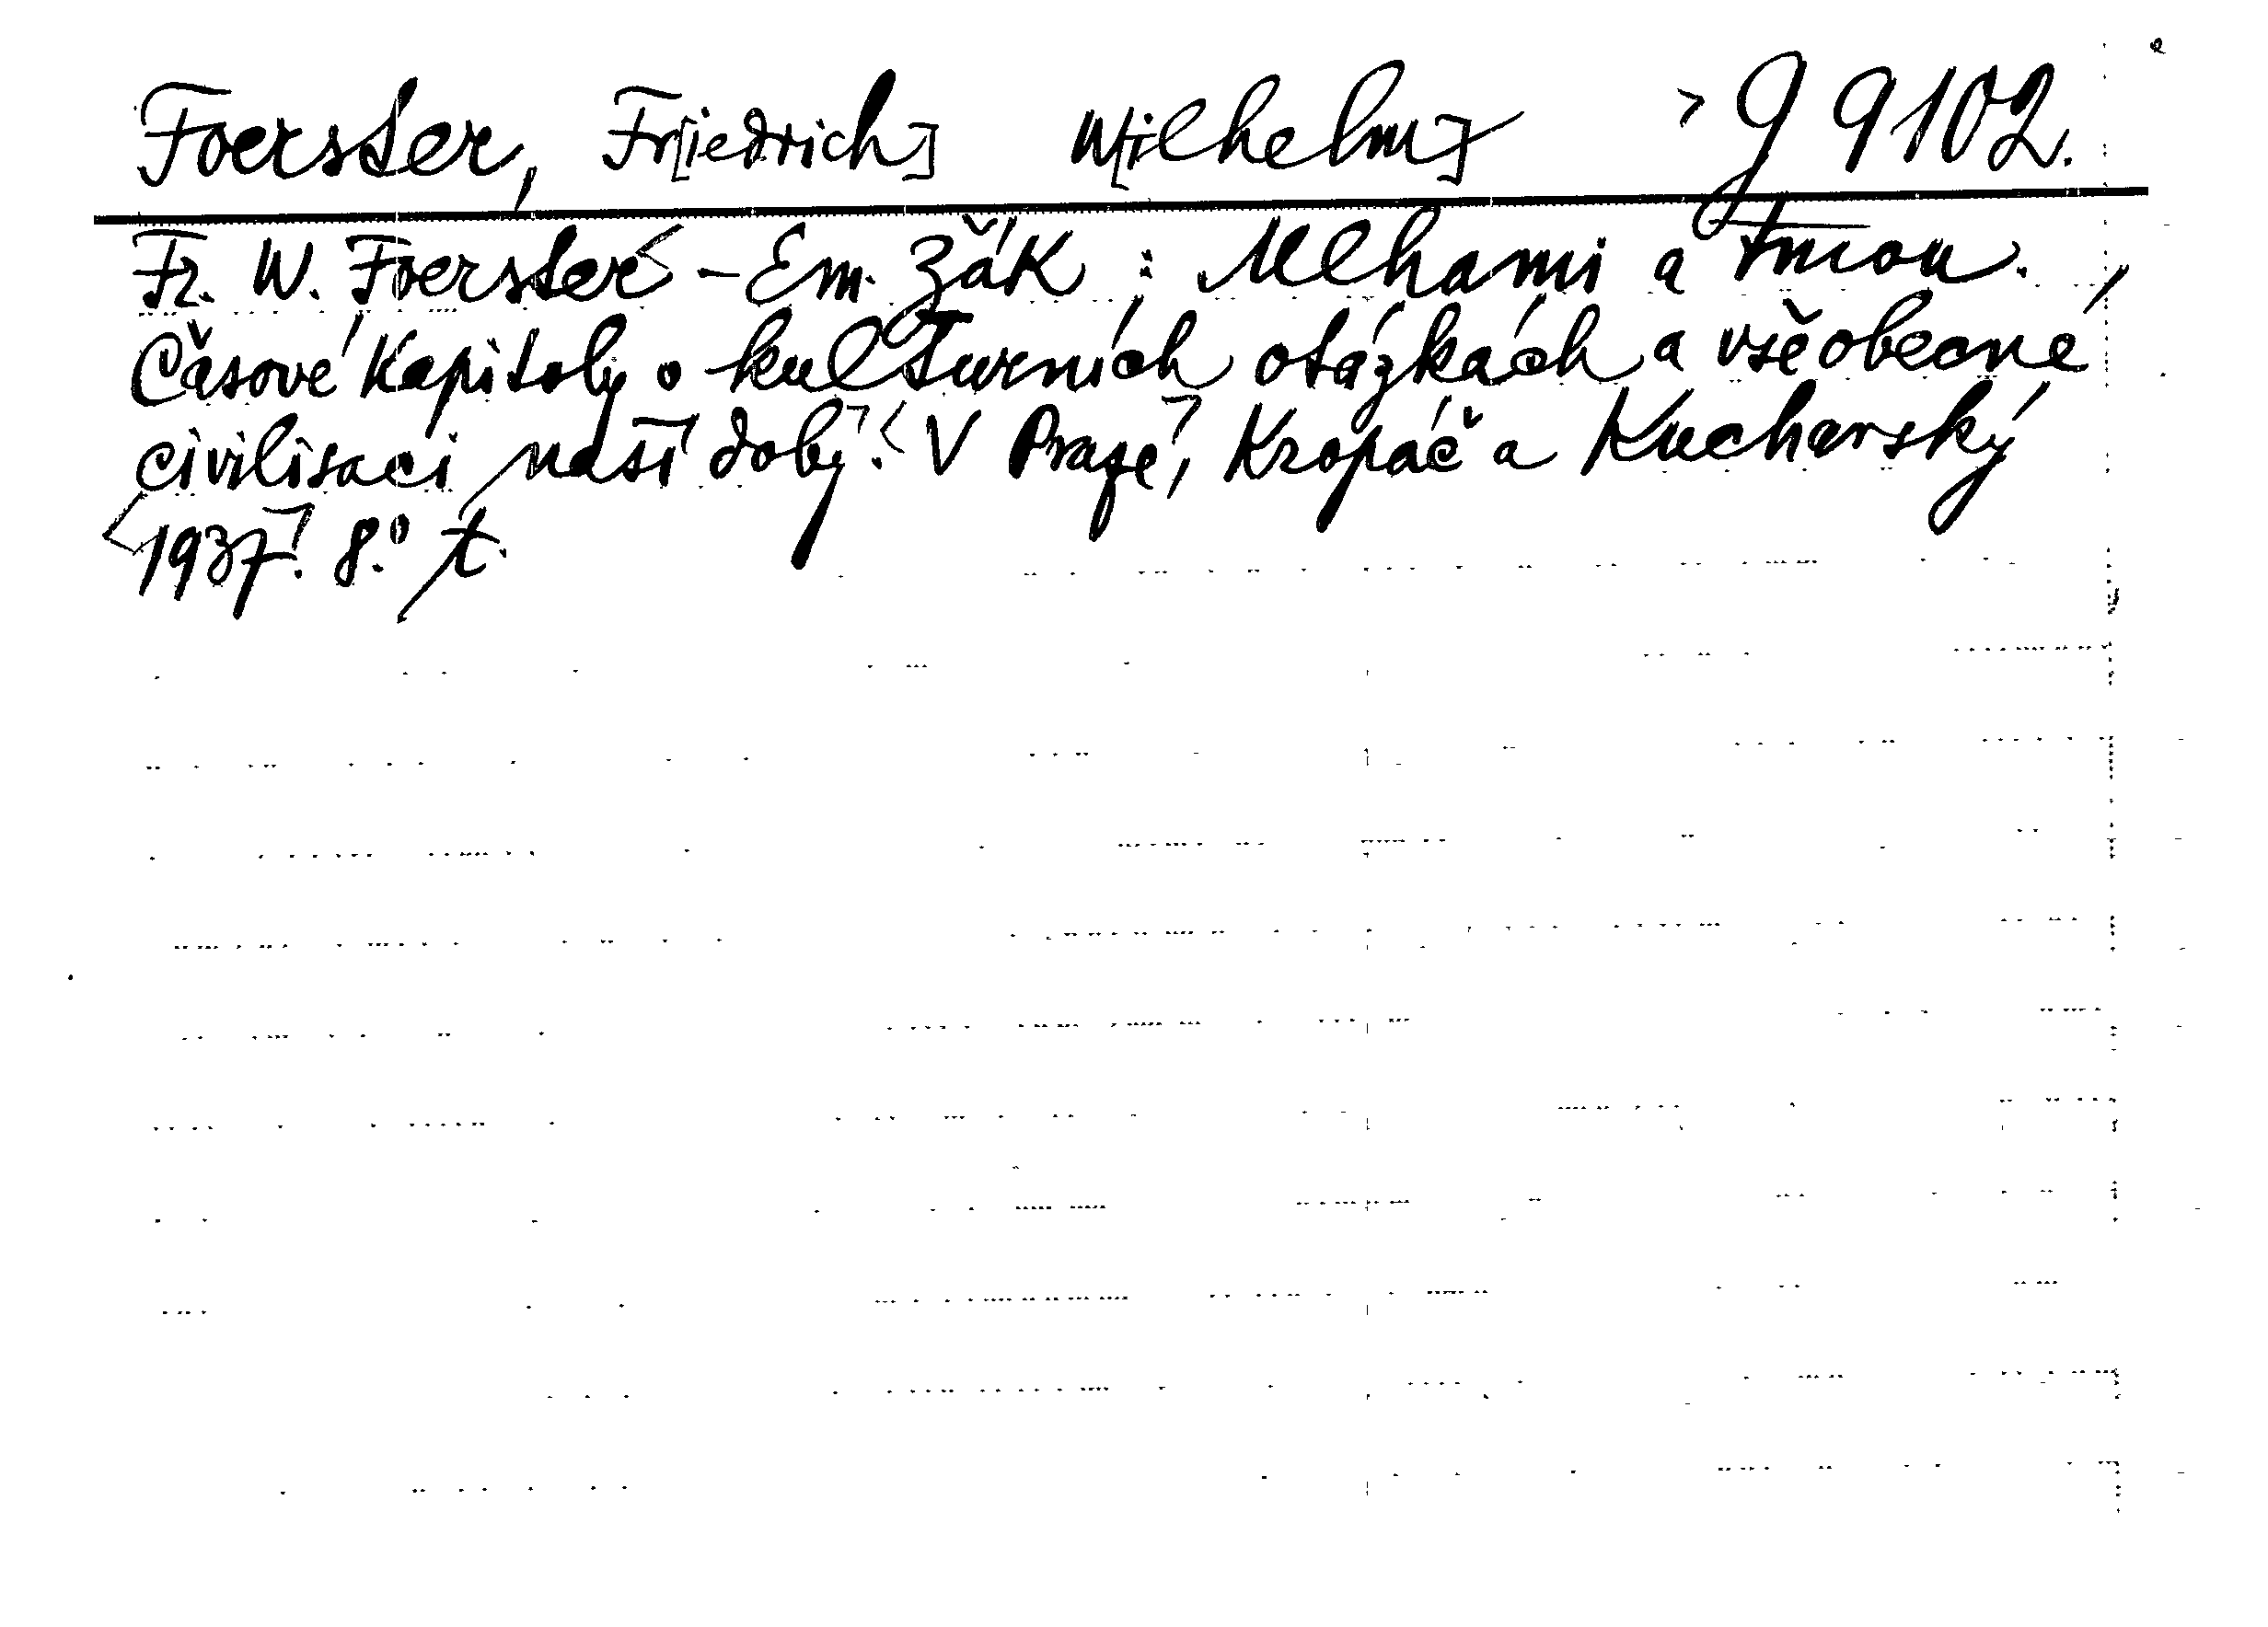 Foerster, Fr[iedrich] W[ilhelm] g 9102.
Fr. W. Foerster - Em. Žák : Mlhami a tmou.
Časové kapitoly o kulturních otázkách a všeobecné
civilisaci naší doby. V Praze, Kropáč a Kucharský
1937. 8.° t.